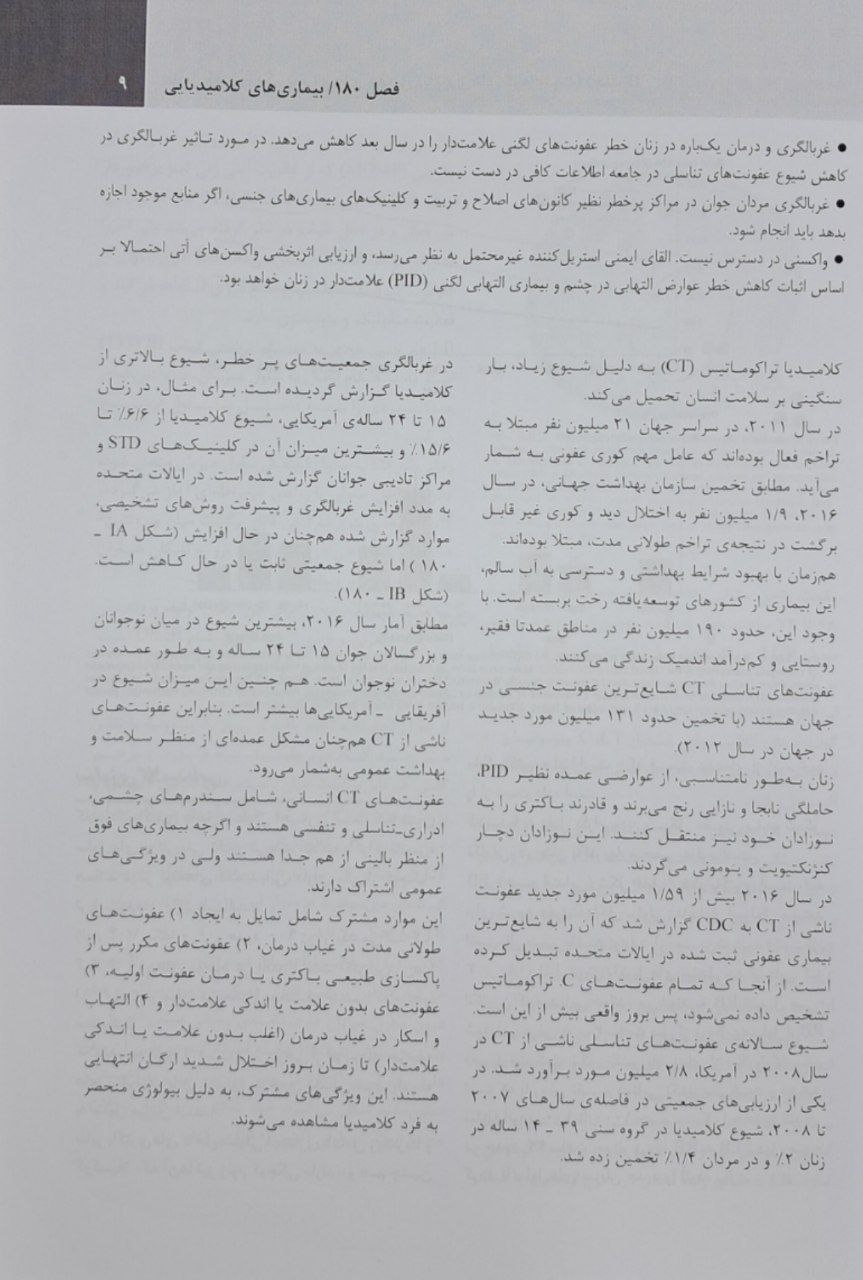 فصل ۱۸۰/ بیماری‌های کلامیدیایی
۹
● غربالگری و درمان یک‌باره در زنان خطر عفونت‌های لگنی علامت‌دار را در سال بعد کاهش می‌دهد. در مورد تاثیر غربـالگری در
کاهش شیوع عفونت‌های تناسلی در جامعه اطلاعات کافی در دست نیست.
● غربالگری مردان جوان در مراکز پرخطر نظیر کانون‌های اصلاح و تربیت و کلینیک‌های بیماری‌های جنسی، اگر منابع موجود اجازه
بدهد باید انجام شود.
● واکسنی در دسترس نیست. القای ایمنی استریل‌کننده غیرمحتمل به نظر می‌رسد، و ارزیابی اثربخشی واکسن‌های آتی احتمـالا بـر
اساس اثبات کاهش خطر عوارض التهابی در چشم و بیماری التهابی لگنی (PID) علامت‌دار در زنان خواهد بود.
کلامیـدیا تراکومـاتیس (CT) بـه دلیـل شـیوع زیـاد، بـار
سنگینی بر سلامت انسان تحمیل می‌کند.
در سال ۲۰۱۱، در سراسر جهان ۲۱ میلیون نفر مبتلا بـه
تراخم فعال بوده‌اند که عامل مهم کوری عفونی به شـمار
می‌آید. مطابق تخمین سازمان بهداشت جهـانی، در سـال
۲۰۱۶، ۱/۹ میلیون نفر به اختلال دید و کوری غیر قابل
برگشت در نتیجه‌ی تراخم طولانی مدت، مبتلا بوده‌اند.
هم‌زمان با بهبود شرایط بهداشتی و دسترسی به آب سالم،
این بیماری از کشورهای توسعه‌یافته رخت بربسته است. با
وجود این، حدود ۱۹۰ میلیون نفر در مناطق عمدتا فقیر،
روستایی و کم‌درآمد اندمیک زندگی می‌کنند.
عفونت‌های تناسلی CT شـایع‌تـرین عفونـت جنسـی در
جهان هستند (با تخمین حدود ۱۳۱ میلیون مورد جدیـد
در جهان در سال ۲۰۱۲).
زنان به‌طور نامتناسبی، از عوارضی عمده نظیـر PID،
حاملگی نابجا و نازایی رنج می‌برند و قادرند باکتری را بـه
نـوزادان خـود نیـز منتقـل کننـد. ایـن نـوزادان دچـار
کنژنکتیویت و پنومونی می‌گردند.
در سال ۲۰۱۶ بیش از ۱/۵۹ میلیون مورد جدید عفونت
ناشی از CT به CDC گزارش شد که آن را به شایع‌ترین
بیماری عفونی ثبت شده در ایالات متحـده تبـدیل کـرده
است. از آنجـا کـه تمـام عفونـت‌هـای C. تراکومـاتیس
تشخیص داده نمی‌شود، پس بروز واقعی بیش از این است.
شـیوع سـالانه‌ی عفونـت‌هـای تناسـلی ناشـی از CT در
سال۲۰۰۸ در آمریکا، ۲/۸ میلیون مورد بـرآورد شـد. در
یکی از ارزیابی‌های جمعیتی در فاصله‌ی سال‌های ۲۰۰۷
تا ۲۰۰۸، شیوع کلامیدیا در گروه سنی ۳۹ ـ ۱۴ ساله در
زنان ۲٪ و در مردان ۱/۴٪ تخمین زده شد.
در غربالگری جمعیـت‌هـای پـر خطـر، شـیوع بـالاتری از
کلامیـدیا گـزارش گردیـده اسـت. بـرای مثـال، در زنـان
۱۵ تا ۲۴ ساله‌ی آمریکایی، شـیوع کلامیـدیا از ۶/۶٪ تـا
۱۵/۶٪ و بیشـتـرین میـزان آن در کلینیـک‌هـای STD و
مراکز تادیبی جوانان گزارش شده است. در ایالات متحـده
به مدد افزایش غربالگری و پیشرفت روش‌های تشخیصی،
موارد گزارش شده هم‌چنان در حال افزایش (شـکل IA ـ
۱۸۰ ) اما شیوع جمعیتی ثابت یا در حال کـاهش اسـت.
(شکل IB ـ ۱۸۰).
مطابق آمار سال ۲۰۱۶، بیشترین شیوع در میان نوجوانان
و بزرگسالان جوان ۱۵ تـا ۲۴ سـاله و بـه طـور عمـده در
دختران نوجوان است. هـم چنـین ایـن میـزان شـیوع در
آفریقایی ـ آمریکایی‌ها بیشتر است. بنابراین عفونـت‌هـای
ناشی از CT هم‌چنان مشکل عمده‌ای از منظـر سـلامت و
بهداشت عمومی به‌شمار می‌رود.
عفونـت‌هـای CT انسـانی، شـامل سـندرم‌هـای چشـمی،
ادراری‌ـ‌تناسلی و تنفسی هستند و اگرچه بیماری‌های فوق
از منظر بالینی از هم جـدا هسـتند ولـی در ویژگـی‌هـای
عمومی اشتراک دارند.
این موارد مشترک شامل تمایل به ایجاد ۱) عفونـت‌هـای
طولانی مدت در غیاب درمان، ۲) عفونت‌های مکرر پس از
پاکسازی طبیعـی بـاکتری یـا درمـان عفونـت اولیـه، ۳)
عفونت‌های بدون علامت یا اندکی علامت‌دار و ۴) التهـاب
و اسکار در غیاب درمان (اغلب بـدون علامـت یـا انـدکی
علامت‌دار) تا زمـان بـروز اخـتلال شـدید ارگـان انتهـایی
هستند. این ویژگی‌های مشترک، به دلیل بیولوژی منحصر
به فرد کلامیدیا مشاهده می‌شوند.